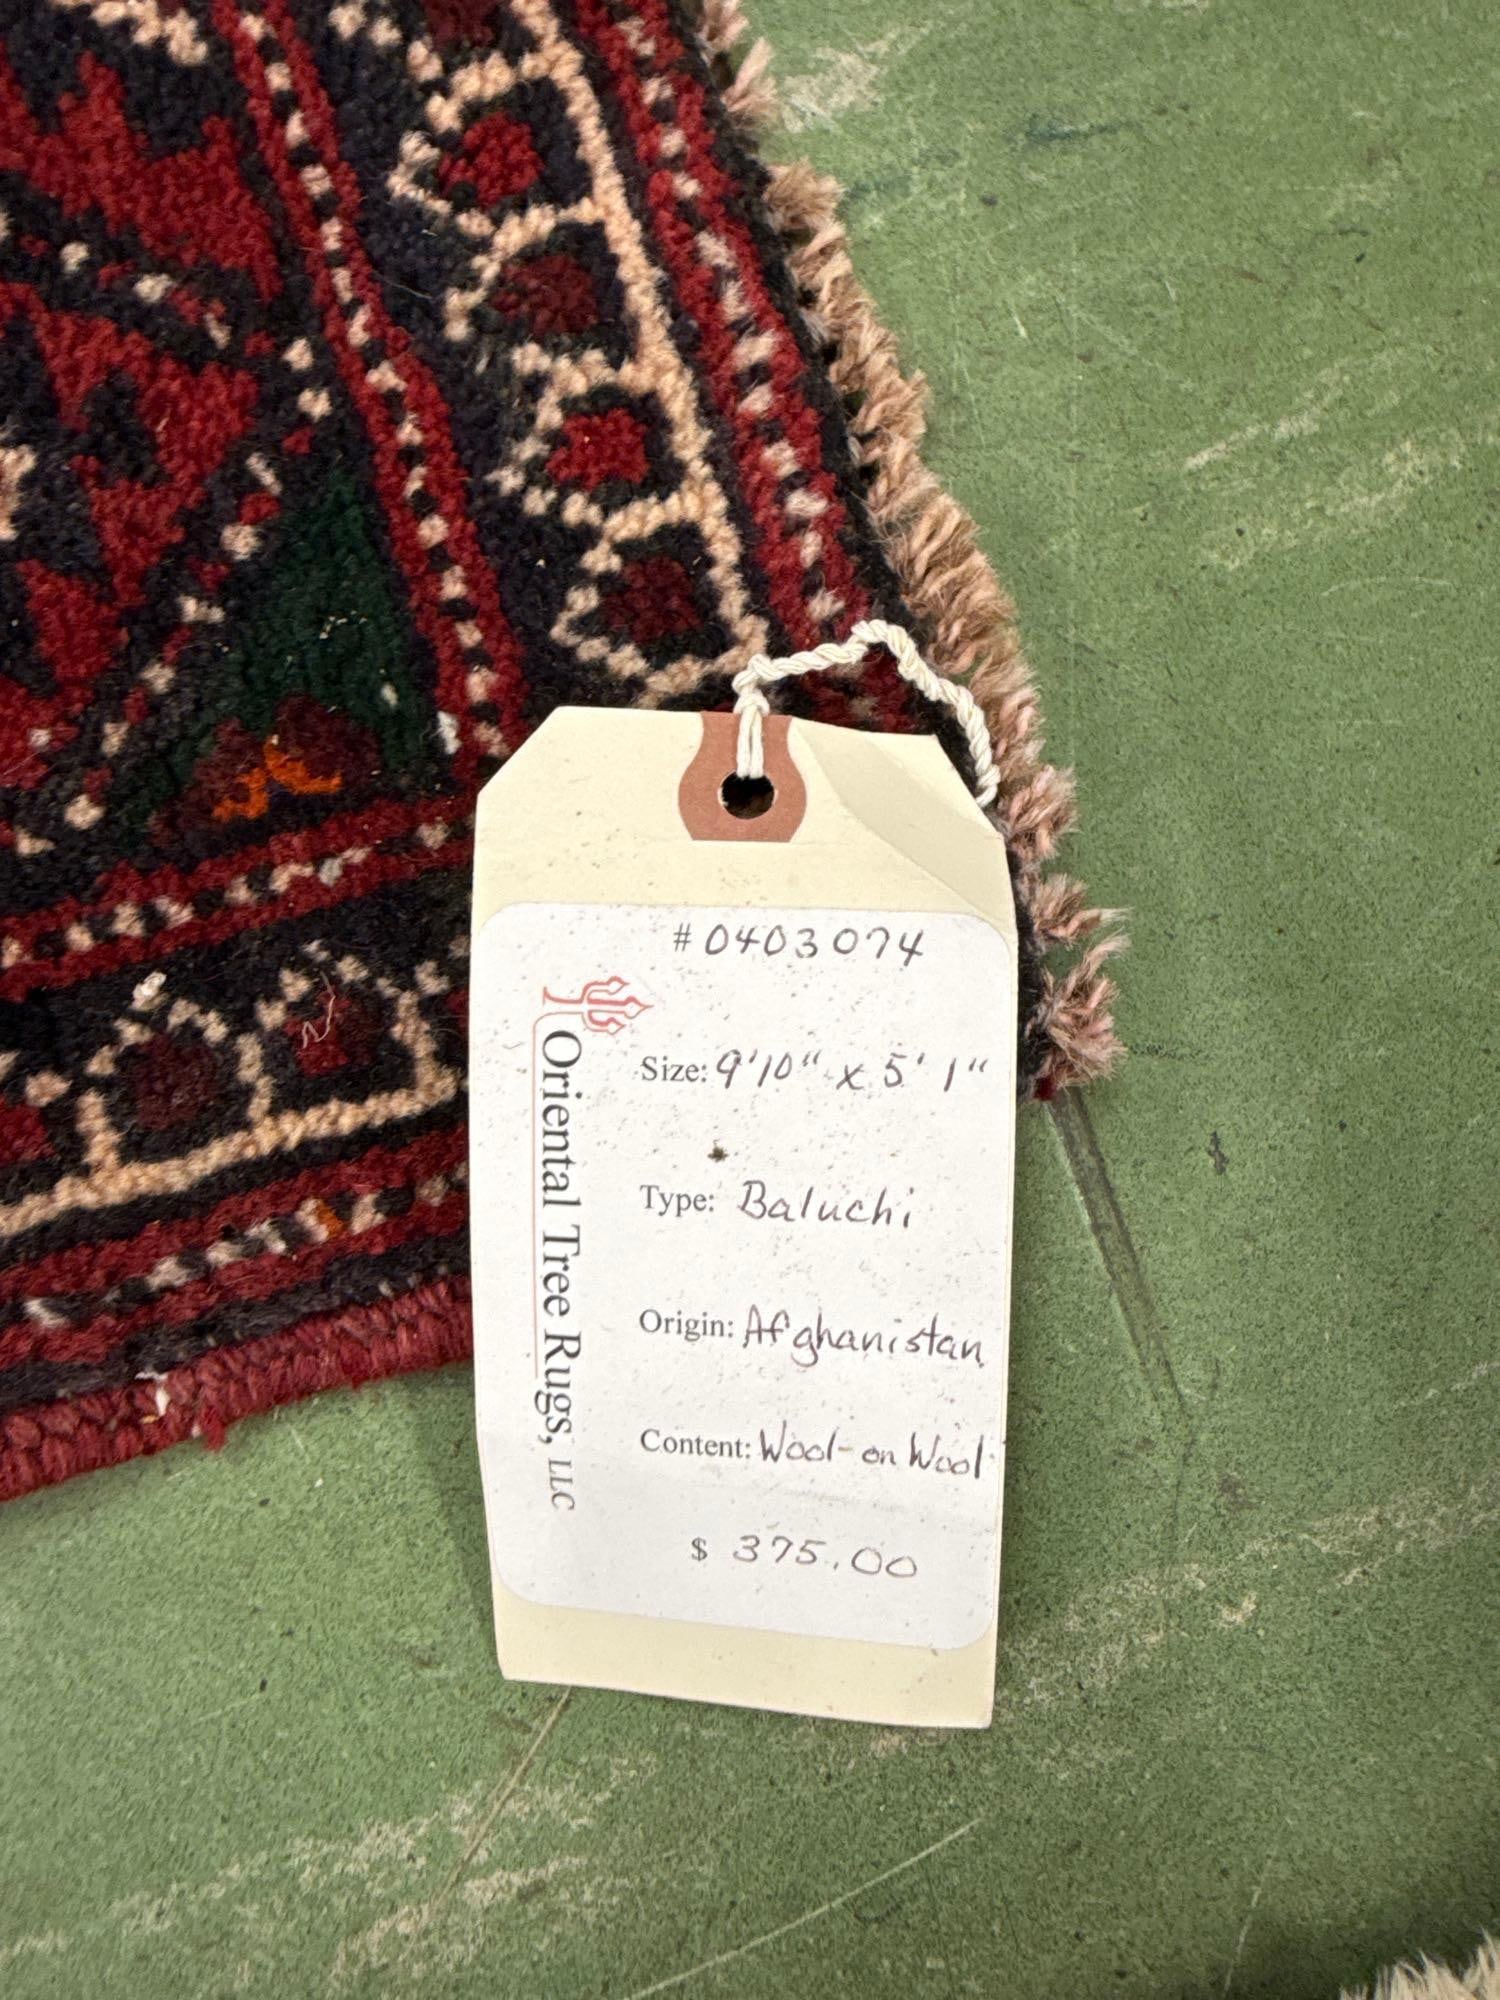 #0403074
Oriental Tree Rugs, LLC
Size: 9'10" x 5' 1"
Type: Baluchi
Origin: Afghanistan
Content: Wool-on Wool
$ 375.00